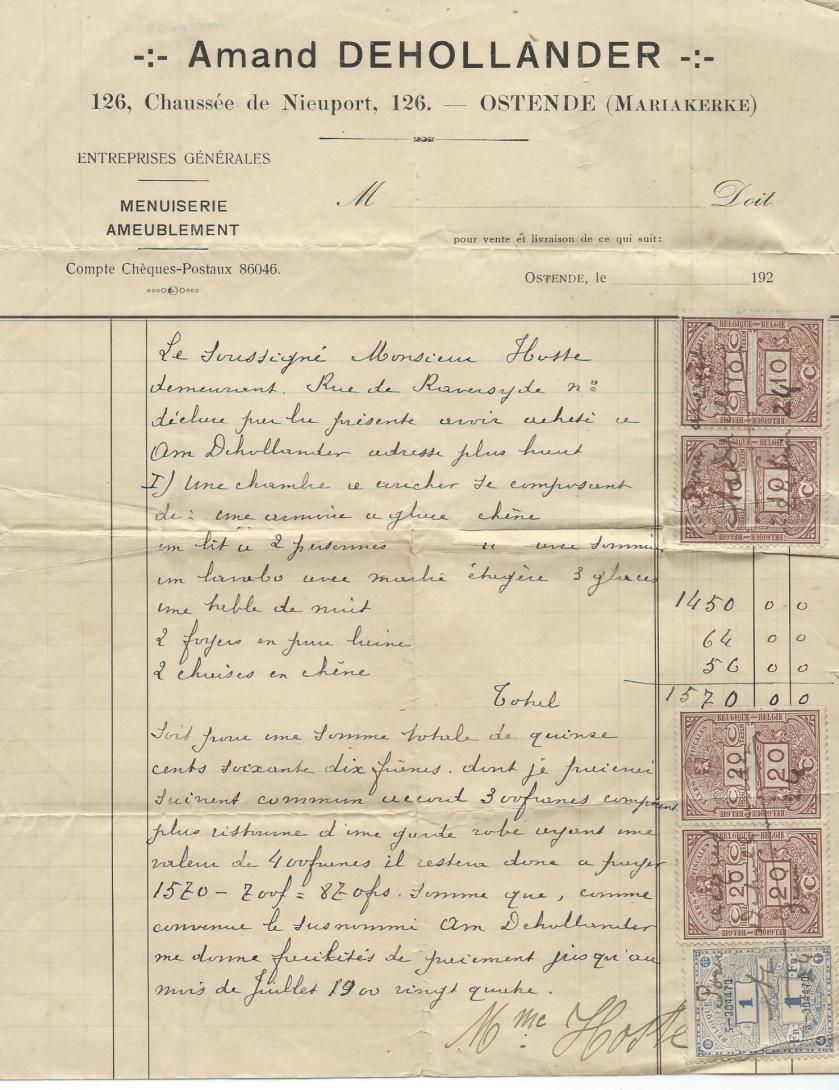 -:- Amand DEHOLLANDER -:-
126, Chaussée de Nieuport, 126. — OSTENDE (MARIAKERKE)
ENTREPRISES GÉNÉRALES
MENUISERIE
AMEUBLEMENT
Compte Chèques-Postaux 86046.
M Doit
pour vente et livraison de ce qui suit:
OSTENDE, le 192
Le Soussigné Monsieur Hoste
demeurant. Rue de Raversyde nº
déclare par la présente avoir acheté a
Am Dehollander adresse plus haut
I) Une chambre a coucher se composant
de: une armoire a glace chêne
un lit à 2 personnes " avec sommi
un lavabo avec marbre étagère 3 glaces
une table de nuit 1450 00
2 foyers en pure laine 64 00
2 chaises en chêne 56 00
Total 1570 00
Soit pour une somme totale de quinse
cents soixante dix francs. dont je paierai
suivant commun accord 300francs comptant
plus ristourne d'une garde robe ayant une
valeur de 400francs il restera donc a payer
1570 - 700f = 870frs. somme que, comme
convenue le susnommé Am Dehollander
me donne facilités de paiement jusqu'au
mois de Juillet 1900 vingt quatre.
Mme Hoste
BELGIQUE-BELGIË
10 10
24
BELGIQUE-BELGIË
10 10
BELGIQUE-BELGIË
20 20
BELGIQUE-BELGIË
20 20
1 Fr 1 Fr
5-304470 5-304470